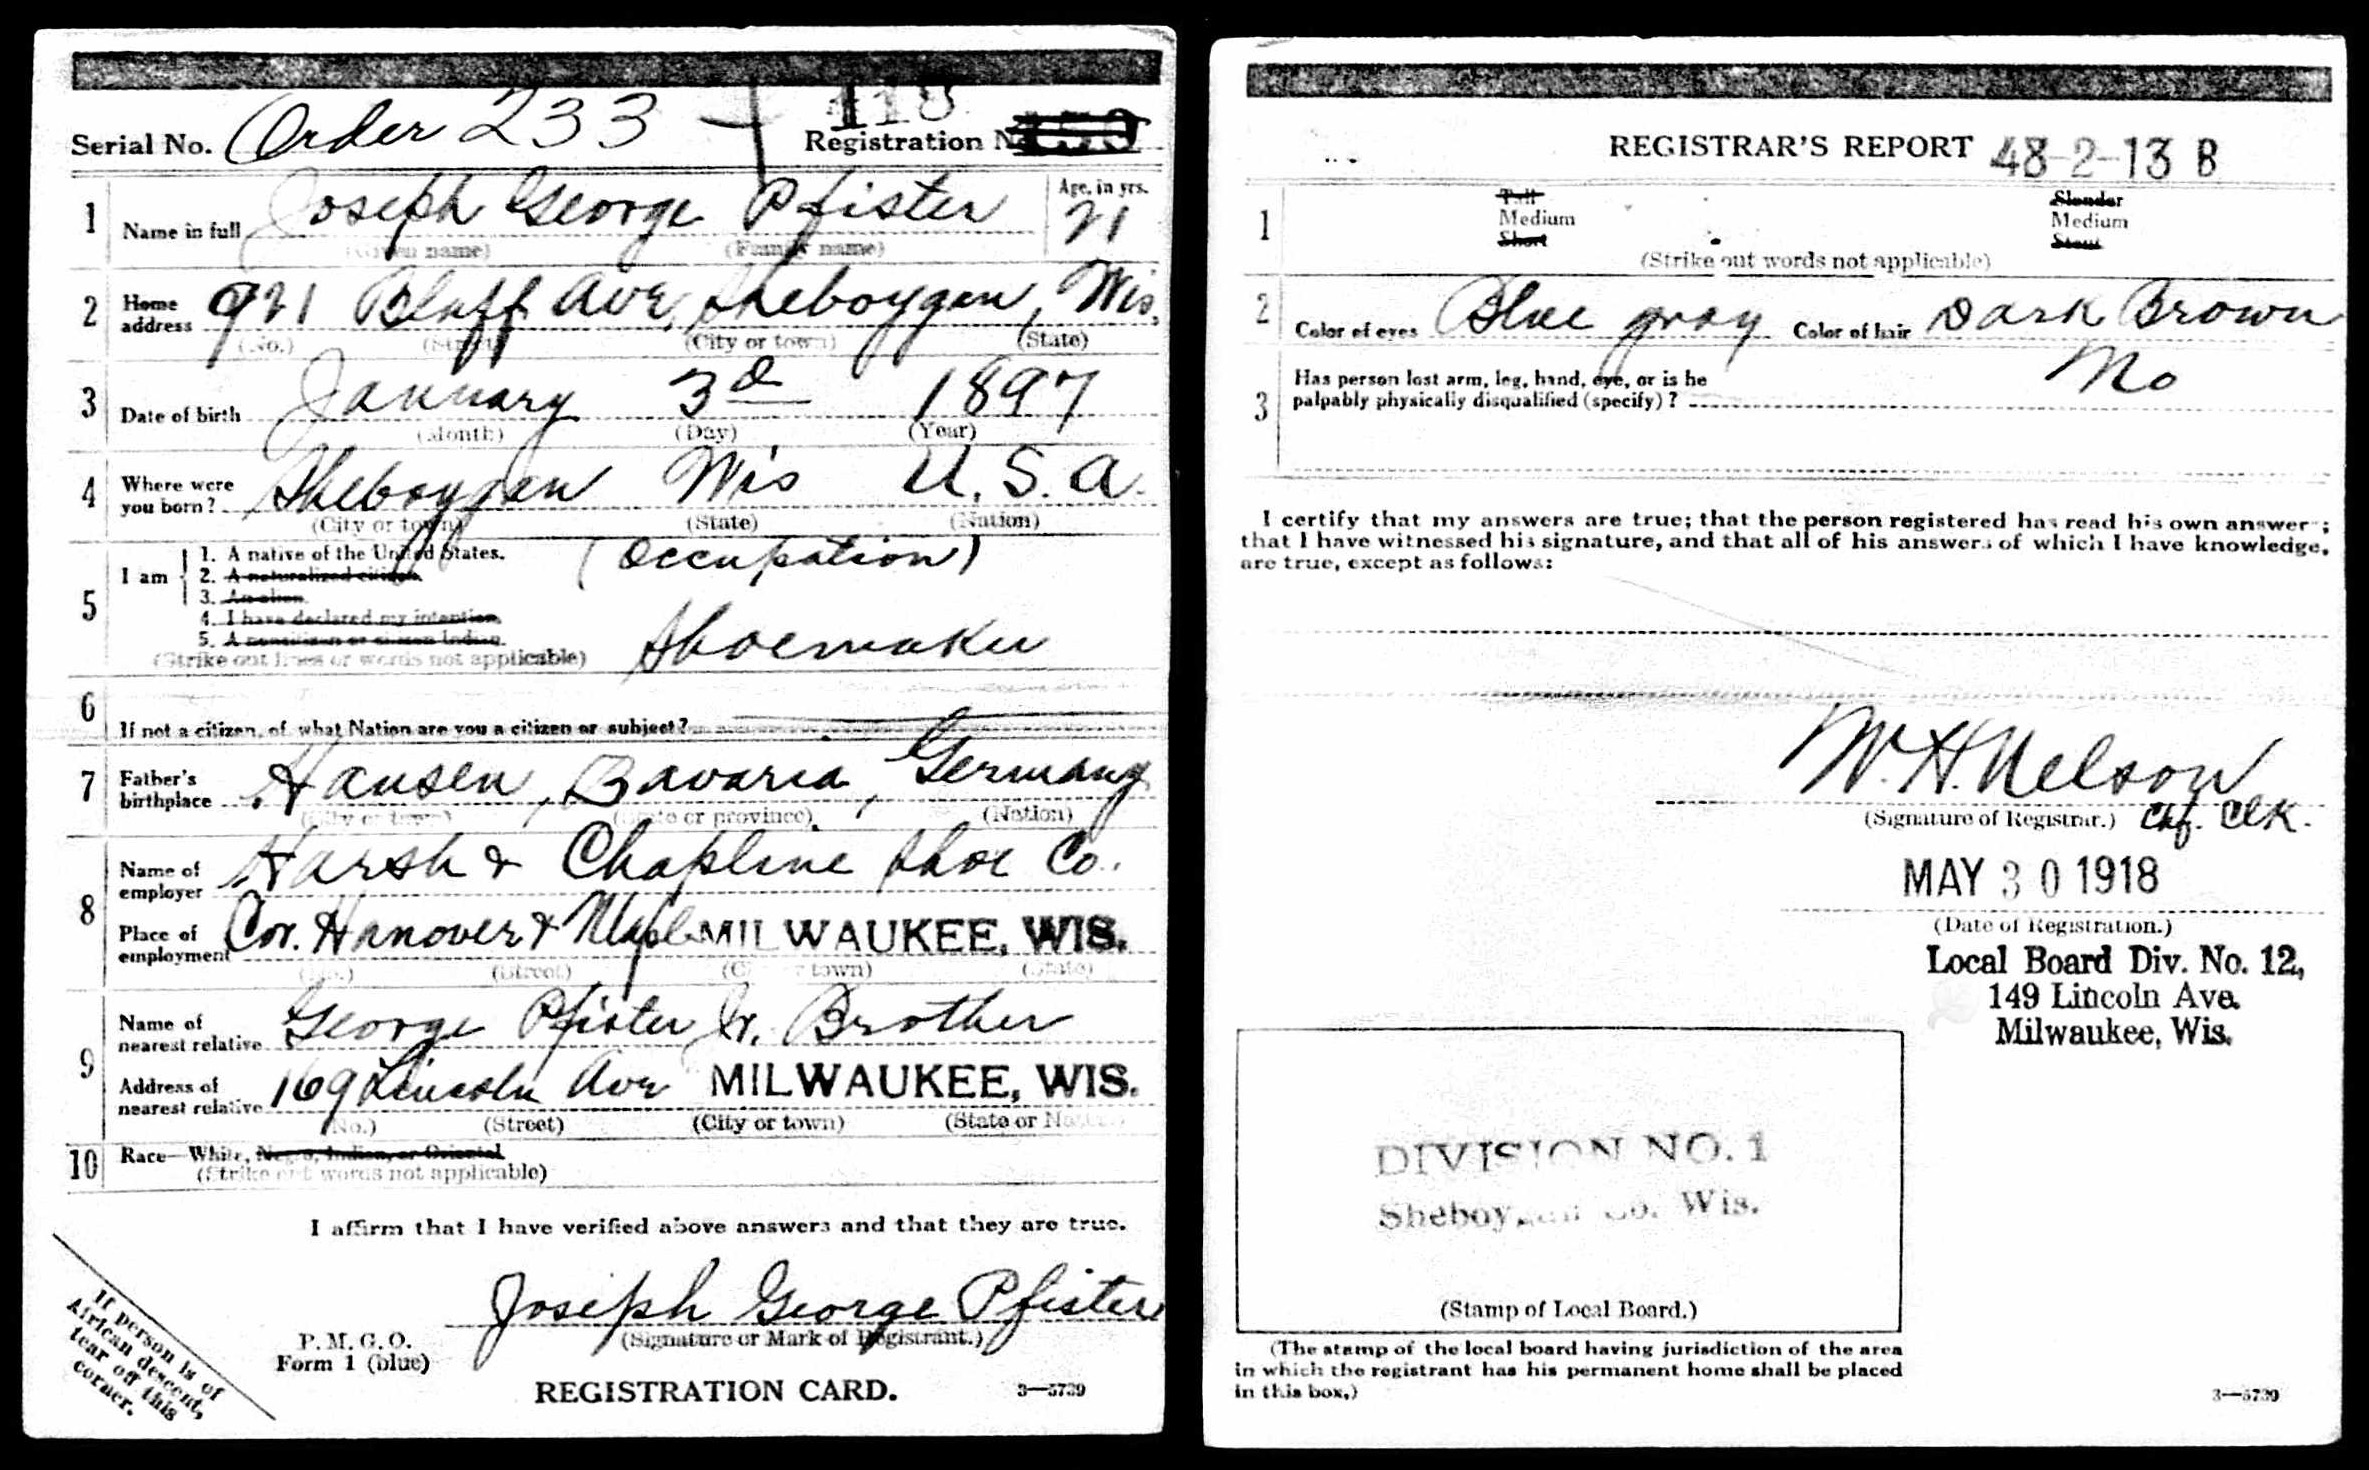 Serial No. Order 233 118
Registration No. 153
1 Name in full Joseph George Pfister Age, in yrs. 21
(Given name) (Family name)
2 Home address 921 Bluff Ave, Sheboygan, Wis.
(No.) (Street) (City or town) (State)
3 Date of birth January 3d 1897
(Month) (Day) (Year)
4 Where were you born? Sheboygan Wis U.S.A.
(City or town) (State) (Nation)
5 I am
1. A native of the United States. (Occupation)
2. A naturalized citizen.
3. An alien.
4. I have declared my intention.
5. A noncitizen or citizen Indian.
Shoemaker
(Strike out lines or words not applicable)
6 If not a citizen, of what Nation are you a citizen or subject?
7 Father's birthplace Hausen, Bavaria, Germany
(City or town) (State or province) (Nation)
8 Name of employer Harsh & Chapline Shoe Co.
Place of employment Cor. Hanover & Maple MILWAUKEE, WIS.
(No.) (Street) (City or town) (State)
9 Name of nearest relative George Pfister Jr. Brother
Address of nearest relative 169 Lincoln Ave MILWAUKEE, WIS.
(No.) (Street) (City or town) (State or Nation)
10 Race—White, Negro, Indian, or Oriental
(Strike out words not applicable)
I affirm that I have verified above answers and that they are true.
Joseph George Pfister
(Signature or Mark of Registrant.)
P. M. G. O.
Form 1 (blue)
REGISTRATION CARD. 3—5739
If person is of
African descent,
tear off this
corner.
REGISTRAR'S REPORT 48-2-13 B
1 Tall Slender
Medium Medium
Short Stout
(Strike out words not applicable)
2 Color of eyes Blue gray Color of hair Dark Brown
3 Has person lost arm, leg, hand, eye, or is he
palpably physically disqualified (specify)? No
I certify that my answers are true; that the person registered has read his own answers;
that I have witnessed his signature, and that all of his answers of which I have knowledge,
are true, except as follows:
W. H. Nelson
(Signature of Registrar.) Chf. Clk.
MAY 30 1918
(Date of Registration.)
Local Board Div. No. 12,
149 Lincoln Ave.
Milwaukee, Wis.
DIVISION NO. 1
Sheboygan Co. Wis.
(Stamp of Local Board.)
(The stamp of the local board having jurisdiction of the area
in which the registrant has his permanent home shall be placed
in this box.)
3—5739